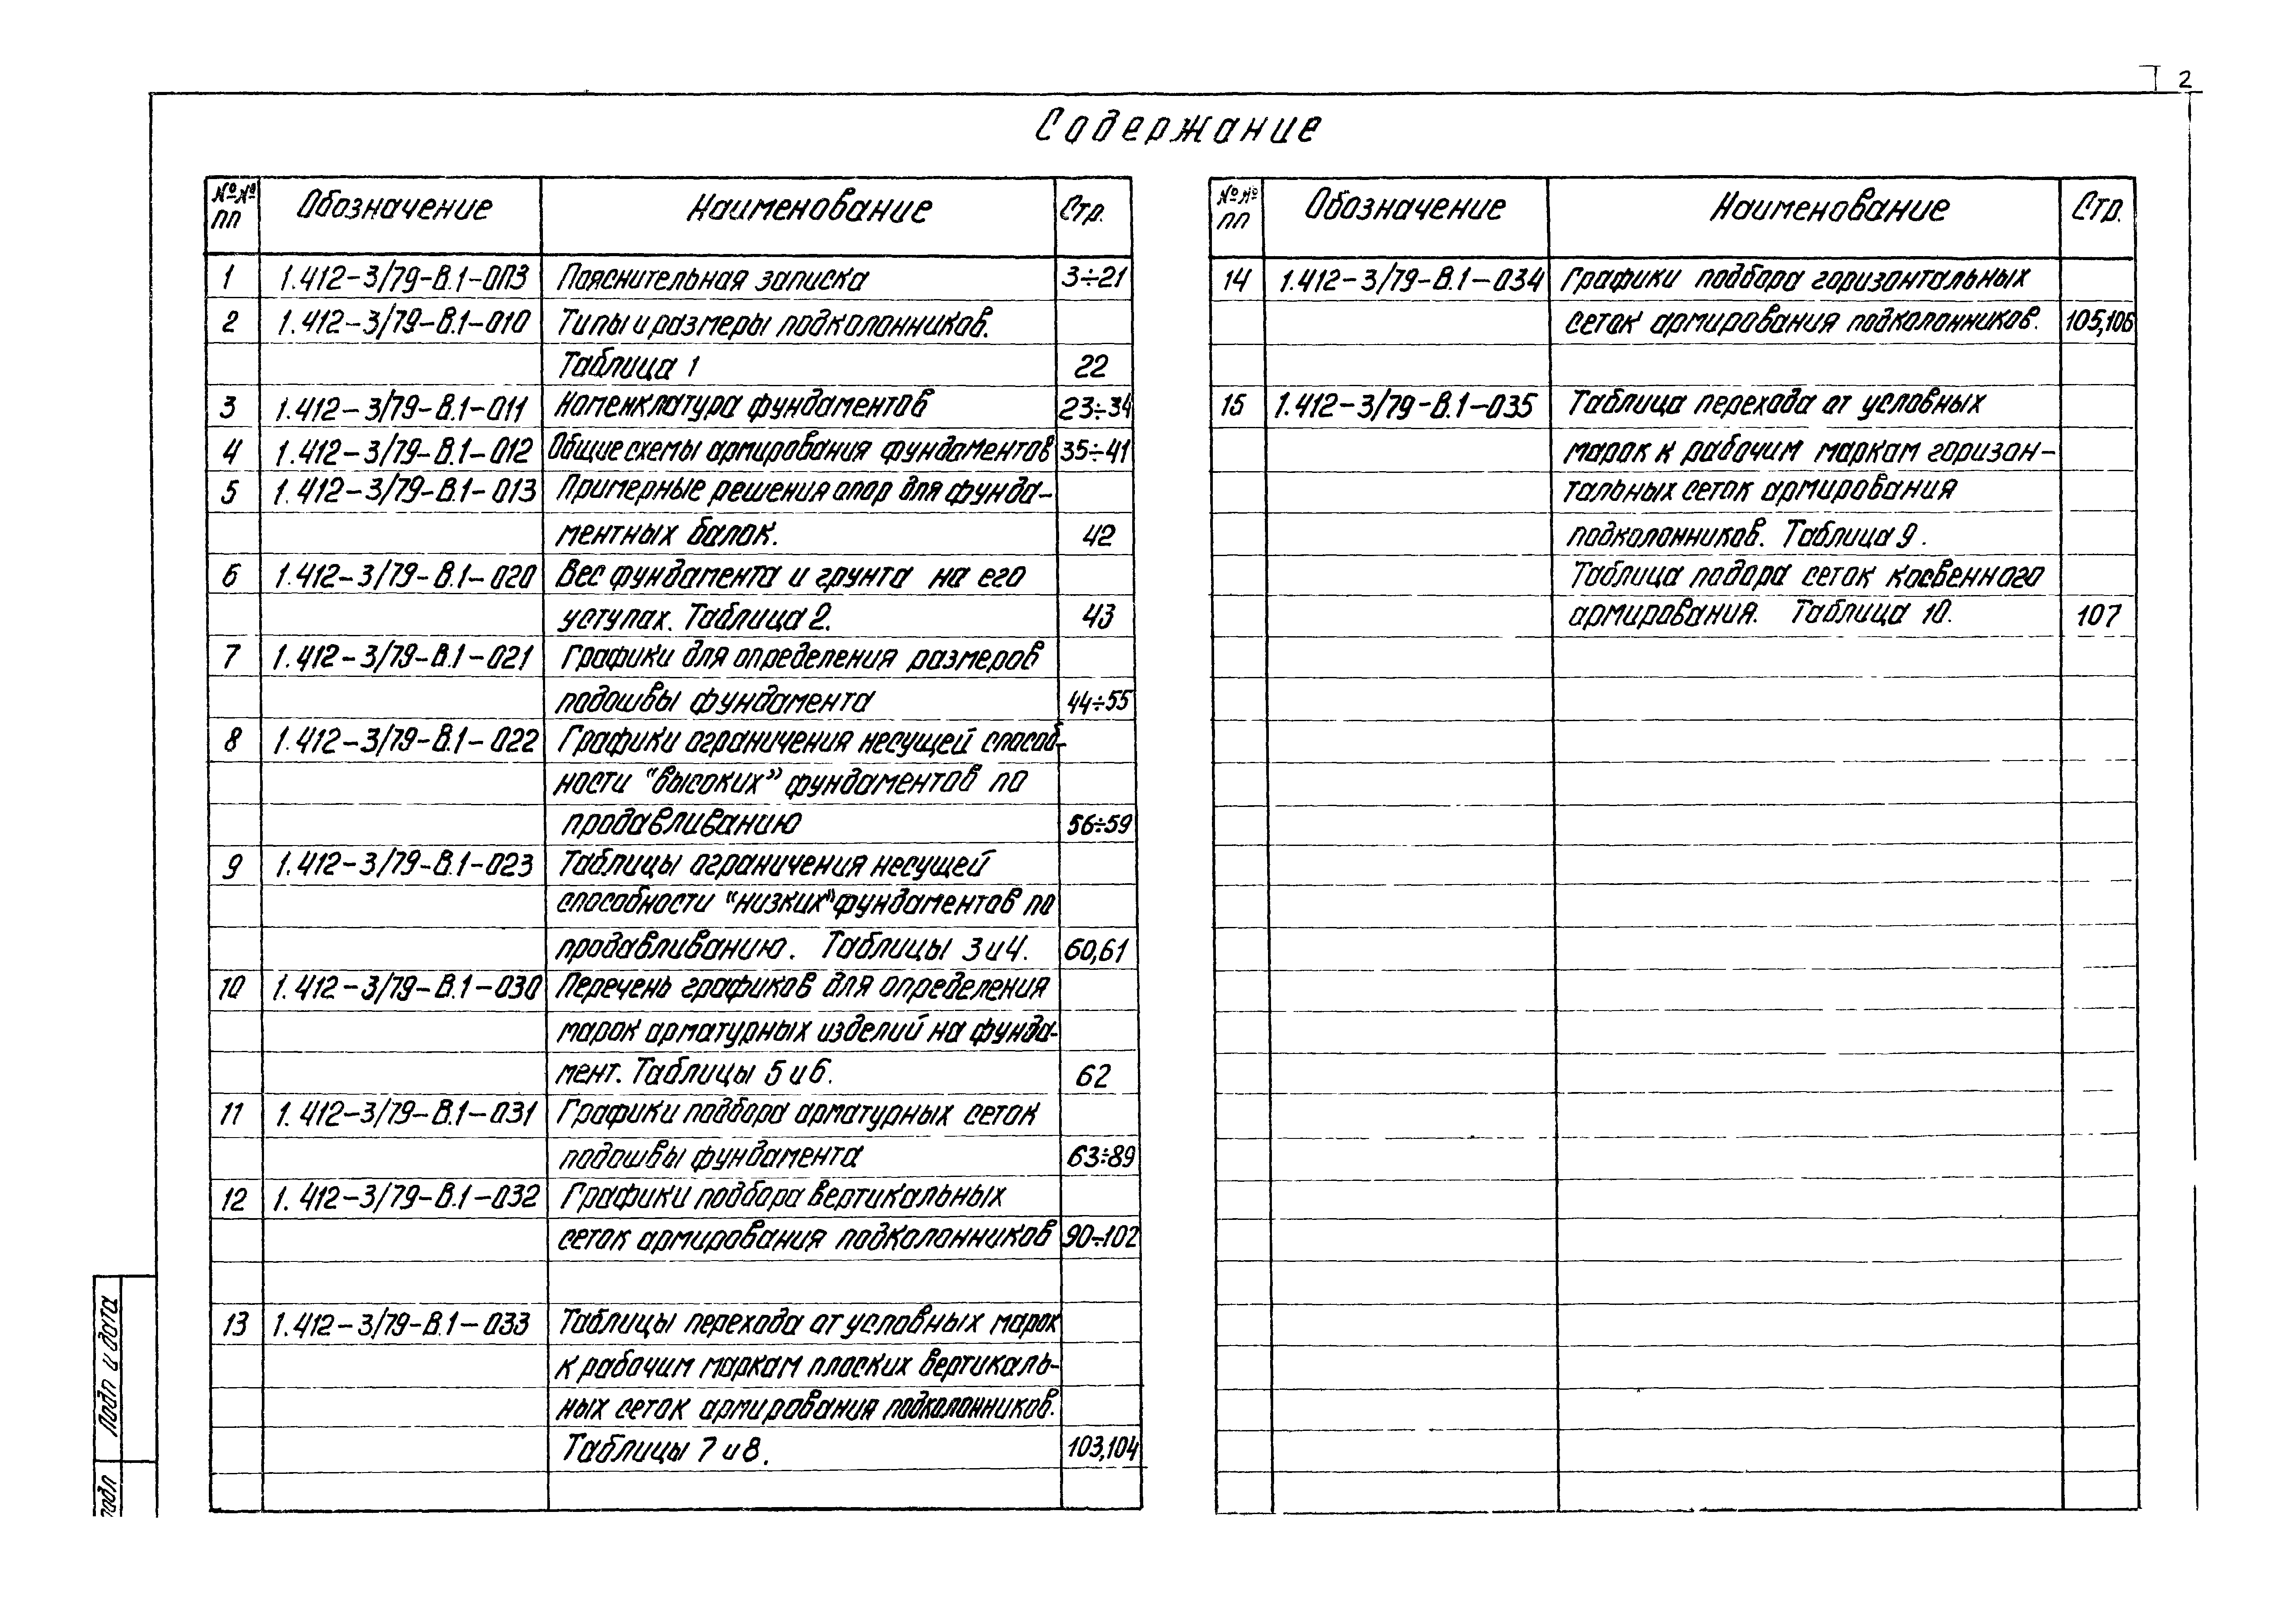 2
Содержание
№№ пп Обозначение Наименование Стр.
1 1.412-3/79-В.1-0ПЗ Пояснительная записка 3÷21
2 1.412-3/79-В.1-010 Типы и размеры подколонников.
Таблица 1 22
3 1.412-3/79-В.1-011 Номенклатура фундаментов 23÷34
4 1.412-3/79-В.1-012 Общие схемы армирования фундаментов 35÷41
5 1.412-3/79-В.1-013 Примерные решения опор для фунда-
ментных балок. 42
6 1.412-3/79-В.1-020 Вес фундамента и грунта на его
уступах. Таблица 2. 43
7 1.412-3/79-В.1-021 Графики для определения размеров
подошвы фундамента 44÷55
8 1.412-3/79-В.1-022 Графики ограничения несущей способ-
ности "высоких" фундаментов по
продавливанию 56÷59
9 1.412-3/79-В.1-023 Таблицы ограничения несущей
способности "низких" фундаментов по
продавливанию. Таблицы 3 и 4. 60,61
10 1.412-3/79-В.1-030 Перечень графиков для определения
марок арматурных изделий на фунда-
мент. Таблицы 5 и 6. 62
11 1.412-3/79-В.1-031 Графики подбора арматурных сеток
подошвы фундамента 63÷89
12 1.412-3/79-В.1-032 Графики подбора вертикальных
сеток армирования подколонников 90÷102
13 1.412-3/79-В.1-033 Таблицы перехода от условных марок
к рабочим маркам плоских вертикаль-
ных сеток армирования подколонников.
Таблицы 7 и 8. 103,104
№№ пп Обозначение Наименование Стр.
14 1.412-3/79-В.1-034 Графики подбора горизонтальных
сеток армирования подколонников. 105,106
15 1.412-3/79-В.1-035 Таблица перехода от условных
марок к рабочим маркам горизон-
тальных сеток армирования
подколонников. Таблица 9.
Таблица подора сеток косвенного
армирования. Таблица 10. 107
Подп и дата
подл